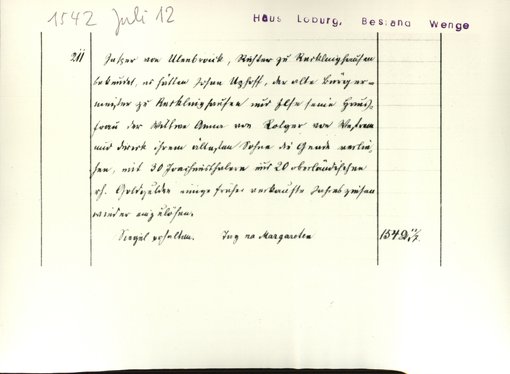 1542 Juli 12
Haus Loburg, Bestand Wenge
211 Jasper von Ulenbrouck, Richter zu Recklinghausen
bekundet, es hätten Johan Uphoff, der alte Bürger-
meister zu Recklinghausen und Else seine Haus-
frau der Witwe Anna von Rolger von Westrem
und durch ihrem ältesten Sohne die Gnade verlie-
hen, mit 30 Joachimsthalern und 20 oberländischen
rh. Goldgulden einige früher verkaufte Jahreszinsen
wieder einzulösen.
Siegel erhalten. Ipg na Margareten 1542